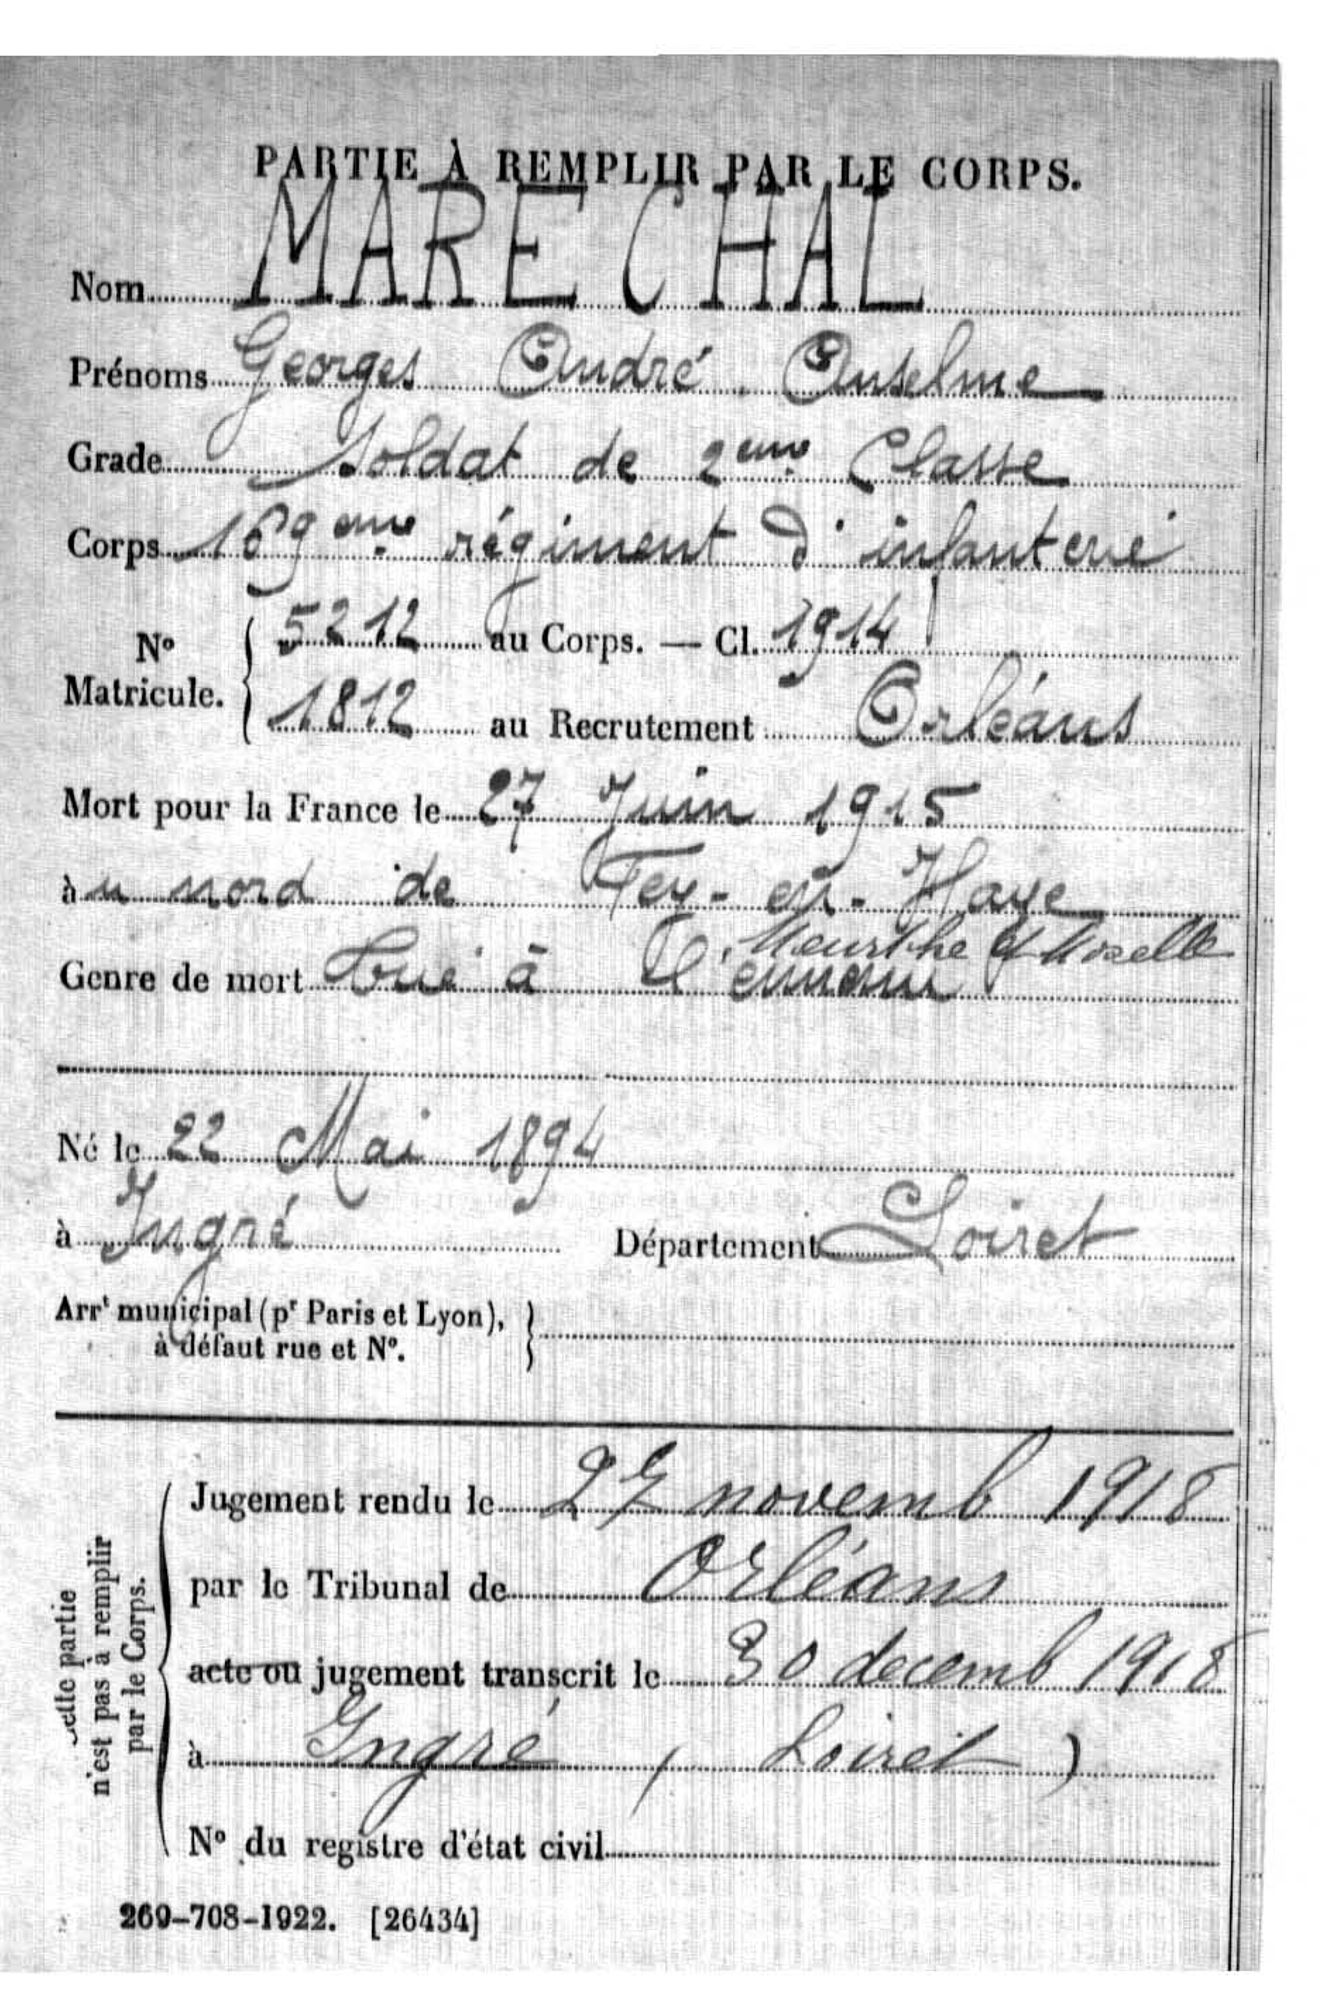 PARTIE À REMPLIR PAR LE CORPS.
Nom MARECHAL
Prénoms Georges André Anselme
Grade Soldat de 2eme Classe
Corps 169eme régiment d'infanterie
No Matricule. 5212 au Corps. — Cl. 1914
1812 au Recrutement Orléans
Mort pour la France le 27 Juin 1915
àu nord de Fey-en-Haye
Meurthe et Moselle
Genre de mort tué à l'ennemi
Né le 22 Mai 1894
à Ingré Département Loiret
Arrt municipal (pr Paris et Lyon),
à défaut rue et No.
Cette partie
n'est pas à remplir
par le Corps.
Jugement rendu le 27 novemb 1918
par le Tribunal de Orléans
acte ou jugement transcrit le 30 decemb 1918
à Ingré (Loiret)
No du registre d'état civil
269-708-1922. [26434]